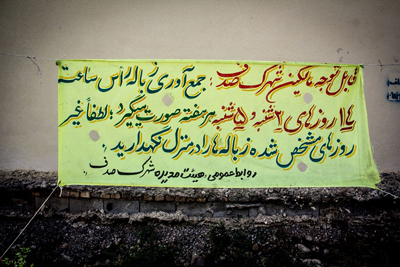 قابل توجه مالکین شهرک صدف : جمع آوری زباله رأس ساعت
۱۹ روزهای ۲شنبه و ۵شنبه هر هفته صورت میگیرد ؛ لطفاً غیر
روزهای مشخص شده زباله ها را در منزل نگهدارید .
روابط عمومی هیئت مدیره شهرک صدف